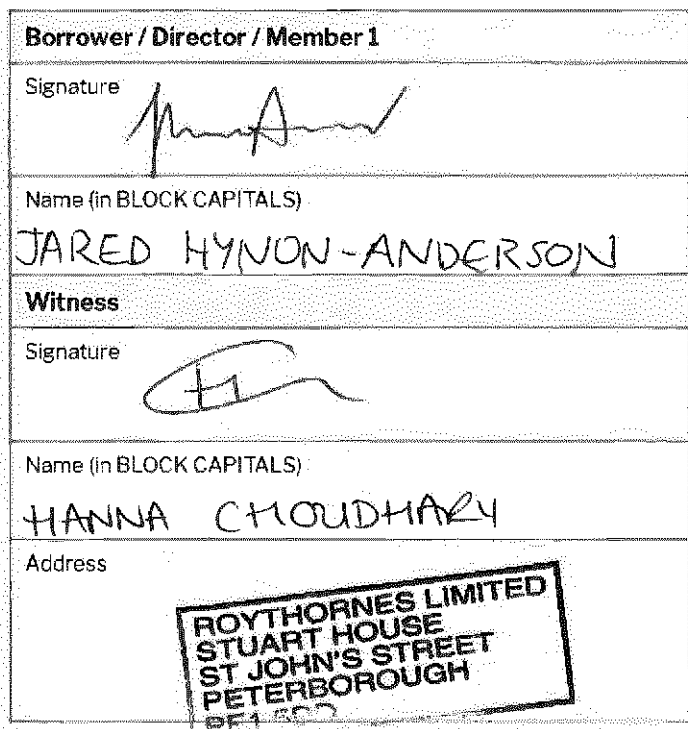 Borrower / Director / Member 1
Signature
Name (in BLOCK CAPITALS)
JARED HYNON-ANDERSON
Witness
Signature
Name (in BLOCK CAPITALS)
HANNA CHOUDHARY
Address
ROYTHORNES LIMITED
STUART HOUSE
ST JOHN'S STREET
PETERBOROUGH